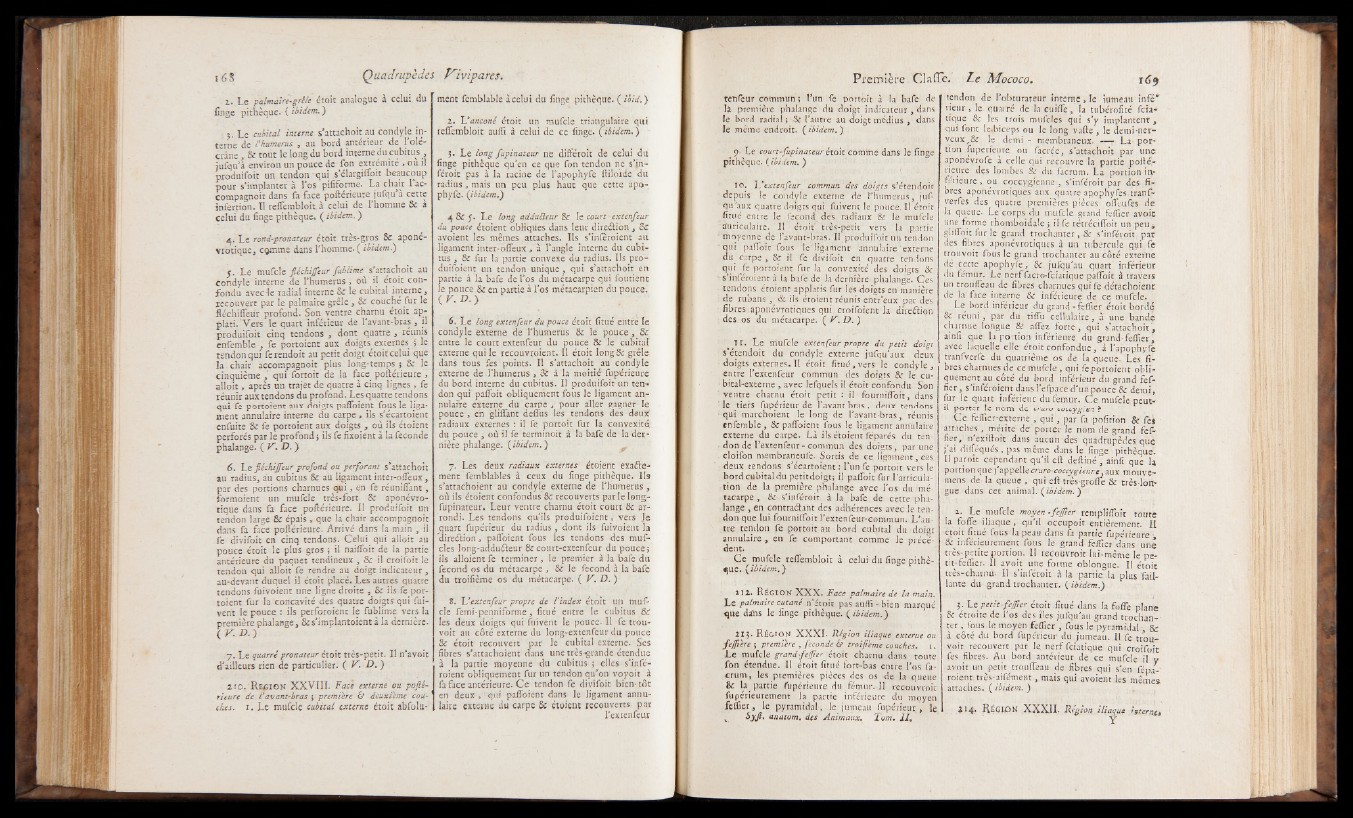 168 Quadrupèdes Vivipares.
2. Le palmaire-grêle étoit analogue à celui du
singe pithèque. ( ibidem. )
3. Le cubital interne s'attachoit au condyle in-
terne de l'humerus , au bord antérieur de l'olé-
crâne , & tout le long du bord interne du cubitus ,
jusqu'à environ un pouce de son extrémité , où il
produisoit un tendon qui s'élargissoit beaucoup
pour s'implanter à l'os pisiforme. La chair l'ac-
compagnoit dans sa face postérieure jusqu'à cette
insertion. Il ressembloit à celui de l'homme & à
celui du singe pithèque. ( ibidem. )
4. Le rond-pronateur étoit très-gros & aponé-
vrotique, comme dans l'homme. ( ibidem. )
5. Le muscle fléchisseur sublime s'attachoit au
condyle interne de l'humerus , où il étoit con-
fondu avec le radial interne & le cubital interne ,
recouvert par le palmaire grêle , & couché sur le
fléchisseur profond. Son ventre charnu étoit ap-
plati. Vers le quart inférieur de l'avant-bras , il
produisoit cinq tendons , dont quatre , réunis
ensemble , se portoient aux doigts externes ; le
tendon qui se rendoit au petit doigt étoit celui que
la chair accompagnoit plus long-temps ; & le
cinquième , qui sortoit de la face postérieure ,
alloit , après un trajet de quatre à cinq lignes , se
réunir aux tendons du profond. Les quatre tendons
qui se portoient aux doigts passoient sous le liga-
ment annulaire interne du carpe , ils s'écartoient
ensuite & se portoient aux doigts , où ils étoient
perforés par le profond ; ils se fixoient à la seconde
phalange. ( V. D. )
6. Le fléchisseur profond ou perforant s'attachoit
au radius, au cubitus & au ligament inter-osseux ,
par des portions charnues qui , en se réunissant ,
formoient un muscle très-fort & aponévro-
tique dans sa face postérieure. Il produisoit un
tendon large & épais , que la chair accompagnoit
dans sa face postérieure. Arrivé dans la main , il
se divisoit en cinq tendons. Celui qui alloit au
pouce étoit le plus gros ; il naissoit de la partie
antérieure du paquet tendineux , & il croisoit le
tendon qui alloit se rendre au doigt indicateur ,
au-devant duquel il étoit placé. Les autres quatre
tendons suivoient une ligne droite , & ils se por-
toient sur la concavité des quatre doigts qui sui-
vent le pouce : ils perforoient le sublime vers la
première phalange , & s'implantoient à la dernière.
( V. D. )
7. Le quarré pronateur étoit très-petit. Il n'avoit
d'ailleurs rien de particulier. ( V. D. )
210. RÉGION XXVIII. Face externe ou posté-
rieure de l'avant-bras ; première & deuxième cou-
ches. 1. Le muscle cubital externe étoit absolu-
ment semblable à celui du singe pithèque. ( ibid. )
2. L'anconé étoit un muscle triangulaire qui
ressembloit aussi à celui de ce singe. ( ibidem. )
3. Le long supinateur ne différoit de celui du
singe pithèque qu'en ce que son tendon ne s'in-
séroit pas à la racine de l'apophyse stiloïde du
radius , mais un peu plus haut que cette apo-
physe. (ibidem.)
4 & 5. Le long adducteur & le court extenseur
du pouce étoient obliques dans leur direction , &
avoient les mêmes attaches. Ils s'inséroient au
ligament inter-osseux , à l'angle interne du cubi-
tus , & sur la partie convexe du radius. Ils pro-
duisoient un tendon unique , qui s'attachoit en
partie à la base de l'os du métacarpe qui soutient
le pouce & en partie à l'os métacarpien du pouce.
( V. D. )
6. Le long extenseur du pouce étoit situé entre le
condyle externe de l'humerus & le pouce , &
entre le court extenseur du pouce & le cubital
externe qui le recouvroient. Il étoit long & grêle
dans tous ses points. Il s'attachoit au condyle
externe de l'humerus , & à la moitié supérieure
du bord interne du cubitus. Il produisoit un ten-
don qui passoit obliquement sous le ligament an-
nulaire externe du carpe , pour aller gagner le
pouce , en glissant dessus les tendons des deux
radiaux externes : il se portoit sur la convexité
du pouce , où il se terminoit à la base de la der-
nière phalange. ( ibidem. )
7. Les deux radiaux externes étoient exacte-
ment semblables à ceux du singe pithèque. Ils
s'attachoient au condyle externe de l'humerus ,
où ils étoient confondus & recouverts par le long-
supinateur. Leur ventre charnu étoit court & ar-
rondi. Les tendons qu'ils produisoient , vers le
quart supérieur du radius , dont ils suivoient la
direction , passoient sous les tendons des mus-
cles long-adducteur & court-extenseur du pouce ;
ils alloient se terminer , le premier à la base du
second os du métacarpe , & le second à la base
du troisième os du métacarpe. ( V. D. )
8. L'extenseur propre de l'index étoit un mus-
cle semi-penniforme , situé entre le cubitus &
les deux doigts qui suivent le pouce. Il se trou-
voit au côté externe du long-extenseur du pouce
& étoit recouvert par le cubital externe. Ses
fibres s'attachoient dans une très-grande étendue
à la partie moyenne du cubitus ; elles s'insé-
roient obliquement sur un tendon qu'on voyoit à
sa face antérieure. Ce tendon se divisoit bien-tôt
en deux , qui passoient dans le ligament annu-
laire externe du carpe & étoient recouverts par
l'extenseur
Première Classe. Le Mococo. 169
tenseur commun ; l'un se portoit à la base de
la première phalange du doigt indicateur , dans
le bord radial ; & l'autre au doigt médius , dans
le même endroit. ( ibidem. )
9. Le court-supinateur étoit comme dans le singe
pithèque. ( ibidem. )
10. L'extenseur commun des doigts s'étendoit
depuis le condyle externe de l'humerus, jus-
qu'aux quatre doigts qui suivent le pouce. Il étoit
situé entre le second des radiaux & le muscle
auriculaire. Il étoit très-petit vers la partie
moyenne de l'avant-bras. Il produisoit un tendon
qui passoit sous le ligament annulaire externe
du carpe , & il se divisoit en quatre tendons
qui se portoient sur la convexité des doigts &
s'inséroient à la base de la dernière phalange. Ces
tendons étoient applatis sur les doigts en manière
de rubans , & ils étoient réunis entr'eux par des
fibres aponévrotiques qui croisoient la direction
des os du métacarpe. ( V. D. )
11. Le muscle extenseur propre du petit doigt
s'étendoit du condyle externe jusqu'aux deux
doigts externes. Il étoit situé , vers le condyle ,
entre l'extenseur commun des doigts & le cu-
bital-externe , avec lesquels il étoit confondu. Son
ventre charnu étoit petit : il fournissoit, dans
le tiers supérieur de l'avant-bras, deux tendons
qui marchoient le long de l'avant-bras , réunis
ensemble , & passoient sous le ligament annulaire
externe du carpe. Là ils étoient séparés du ten-
don de l'extenseur-commun des doigts, par une
cloison membraneuse. Sortis de ce ligament , ces
deux tendons s'écartoient : l'un se portoit vers le
bord cubital du petit doigt ; il passoit sur l'articula-
tion de la première phalange avec l'os du mé-
tacarpe , & s'inséroit à la base de cette pha-
lange , en contractant des adhérences avec le ten-
don que lui fournissoit l'extenseur-commun. L'au-
tre tendon se portoit au bord cubital du doigt
annulaire , en se comportant comme le précé-
dent.
Ce muscle ressembloit à celui du singe pithè-
que. (ibidem.)
212. RÉGION XXX. Face palmaire de la main.
Le palmaire cutané n'étoit pas aussi-bien marqué
que dans le singe pithèque. ( ibidem. )
213. RÉGION XXXI. Région iliaque externe ou
fessière ; première , seconde & troisième couches. 1.
Le muscle grand-fessier étoit charnu dans toute
son étendue. Il étoit situé fort-bas entre l'os sa-
crum, les premières pièces des os de la queue
& la partie supérieure du fémur. Il recouvroit
supérieurement la partie inférieure du moyen
fessier, le pyramidal, le jumeau supérieur , le
Syst. anatom. des Animaux. Tom. II.
tendon de l'obturateur interne , le jumeau infé-
rieur , le quarré de la cuisse , la tubérosité scia-
tique & les trois muscles qui s'y implantent ,
qui sont le biceps ou le long vaste , le demi-ner-
veux & le demi-membraneux. — La por-
tion supérieure ou sacrée, s'attachoit par une
aponévrose à celle qui recouvre la partie posté-
rieure des lombes & du sacrum. La portion in-
férieure , ou coccygienne , s'inséroit par des fi-
bres aponévrotiques aux quatre apophyses trans-
verses des quatre premières pièces osseuses de
la queue. Le corps du muscle grand fessier avoit
une forme rhomboïdale ; il se rétrécissoit un peu ,
glissoit sur le grand trochanter , & s'inséroit par
des fibres aponévrotiques à un tubercule qui se
trouvoit sous le grand trochanter au côté externe
de cette apophyse , & jusqu'au quart inférieur
du fémur. Le nerf sacro-sciatique passoit à travers
un trousseau de fibres charnues qui se détachoient
de la face interne & inférieure de ce muscle.
Le bord inférieur du grand-fessier étoit bordé
& réuni , par du tissu cellulaire, à une bande
charnue longue & assez forte , qui s'attachoit,
ainsi que la portion inférieure du grand-fessier ,
avec laquelle elle étoit confondue , à l'apophyse
transverse du quatrième os de la queue. Les fi-
bres charnues de ce muscle , qui se portoient obli-
quement au côté du bord inférieur du grand fes-
sier , s'inséroient dans l'espace d'un pouce & demi,
sur le quart inférieur du fémur. Ce muscle peut-
il porter le nom de cruro coccygien ?
Ce fessier-externe , qui , par sa position & ses
attaches , mérite de porter le nom de grand fes-
sier, n'existoit dans aucun des quadrupèdes que
j'ai disséqués , pas même dans le singe pithèque.
Il paroît cependant qu'il est destiné , ainsi que la
portion que j'appelle cruro-coccygienne , aux mouve-
mens de la queue , qui est très-grosse & très-lon-
gue dans cet animal. ( ibidem. )
2. Le muscle moyen-fessier remplissoit toute
la fosse iliaque , qu'il occupoit entièrement. Il
étoit situé sous la peau dans sa partie supérieure ,
& inférieurement sous le grand fessier dans une
très-petite portion. Il recouvroit lui-même le pe-
tit-fessier. Il avoit une forme oblongue. Il étoit
très-charnu. Il s'inséroit à la partie la plus sail-
lante du grand trochanter. ( ibidem.)
3. Le petit-fessier étoit situé dans la fosse plane
& étroite de l'os des iles jusqu'au grand trochan-
ter , sous le moyen fessier , sous le pyramidal , &
à côté du bord supérieur du jumeau. Il se trou-
voit recouvert par le nerf sciatique qui croisoit
ses fibres. Au bord antérieur de ce muscle il y
avoit un petit trousseau de fibres qui s'en sépa-
roient très-aisément , mais qui avoient les mêmes
attaches. ( ibidem. )
214. RÉGION XXXII. Région iliaque interne,
Y